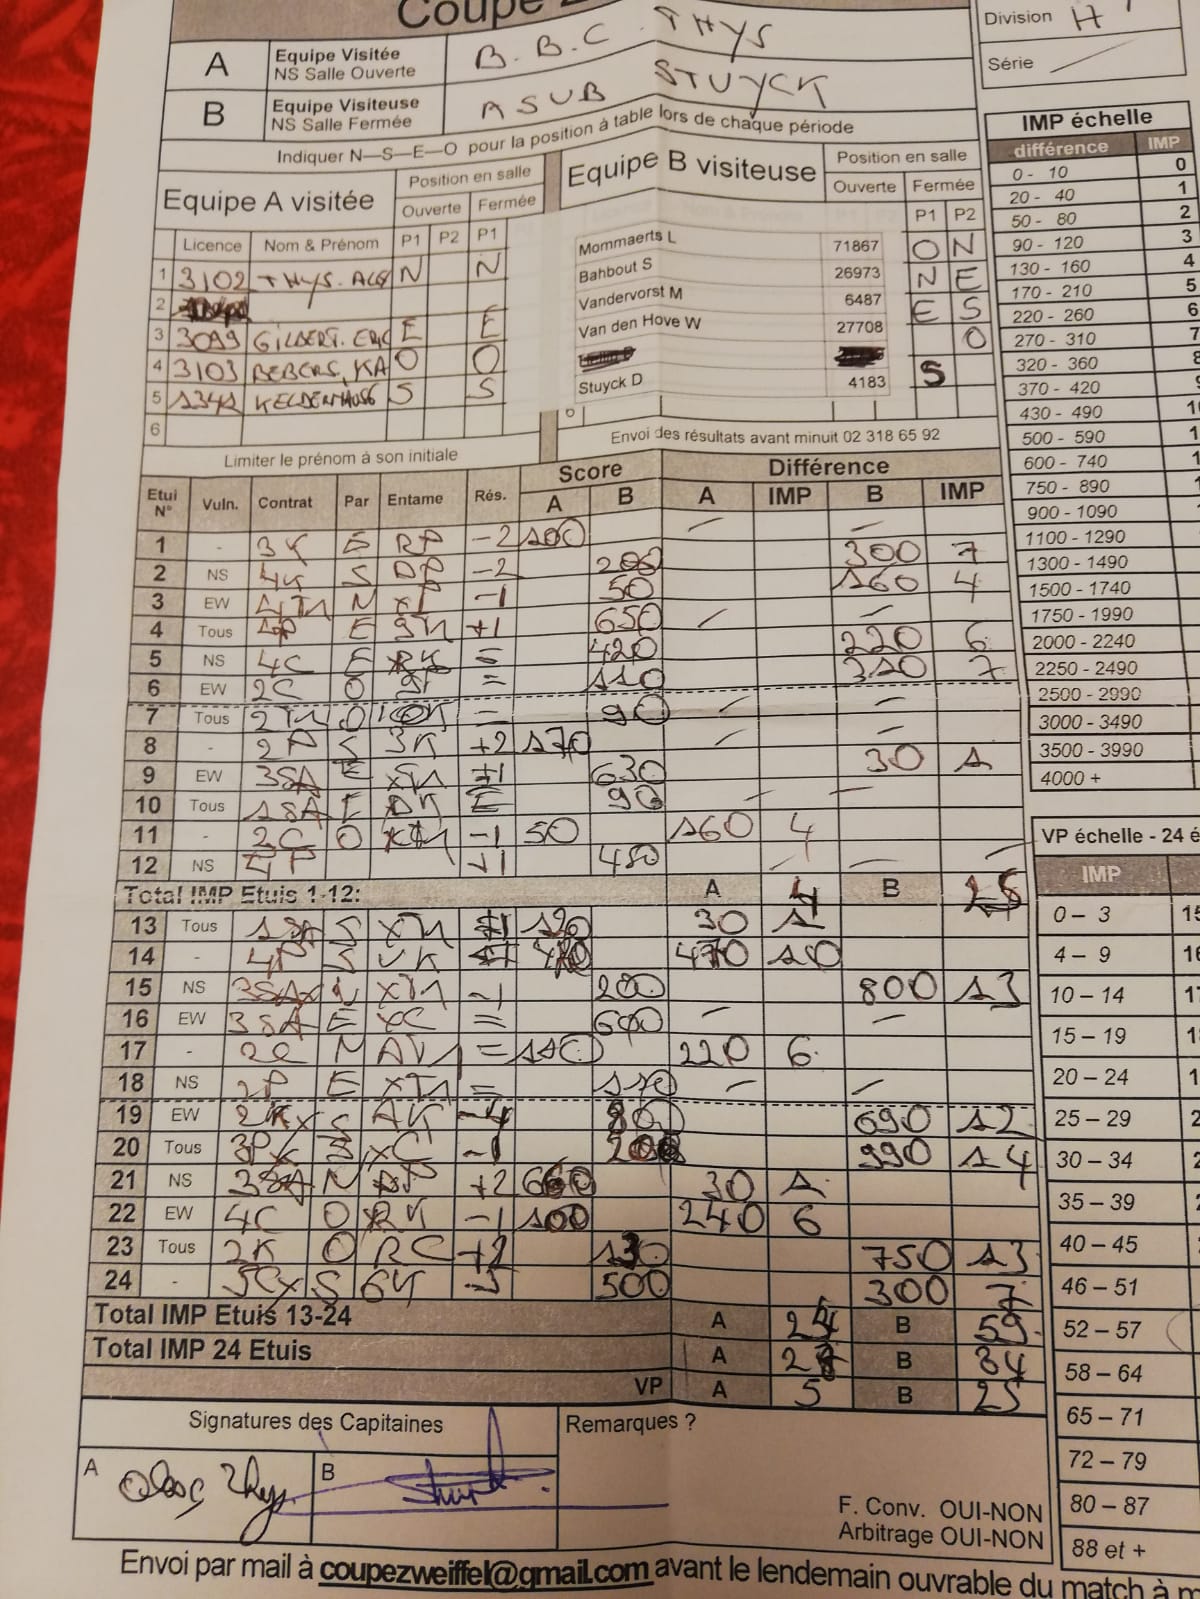 Coupe
Division H
Série
A Equipe Visitée B.B.C. THYS
NS Salle Ouverte
B Equipe Visiteuse ASUB STUYCK
NS Salle Fermée
Indiquer N—S—E—O pour la position à table lors de chaque période
Equipe A visitée Position en salle
Ouverte Fermée
Licence Nom & Prénom P1 P2 P1
1 3102 THYS. N N
2
3 3099 GILBERT. ERIC E E
4 3103 BEBERS, KA O O
5 S S
6
Limiter le prénom à son initiale
Equipe B visiteuse Position en salle
Ouverte Fermée
P1 P2
Mommaerts L 71867 O N
Bahbout S 26973 N E
Vandervorst M 6487 E S
Van den Hove W 27708 O
Stuyck D 4183 S
6
Envoi des résultats avant minuit 02 318 65 92
IMP échelle
différence IMP
0 - 10 0
20 - 40 1
50 - 80 2
90 - 120 3
130 - 160 4
170 - 210 5
220 - 260 6
270 - 310 7
320 - 360 8
370 - 420 9
430 - 490
500 - 590
600 - 740
750 - 890
900 - 1090
1100 - 1290
1300 - 1490
1500 - 1740
1750 - 1990
2000 - 2240
2250 - 2490
2500 - 2990
3000 - 3490
3500 - 3990
4000 +
Score Différence
Etui N° Vuln. Contrat Par Entame Rés. A B A IMP B IMP
1 - 3K E RP -2 100 — —
2 NS 4K S DP -2 200 300 7
3 EW N -1 50 160 4
4 Tous 4P E +1 650 — —
5 NS 4C E = 420 220 6
6 EW 2C O = 110 310 7
7 Tous O = 90 — —
8 - 2P S 3K +2 170 — —
9 EW 3SA E +1 630 30 1
10 Tous 1SA E 90 — —
11 - 2C O -1 50 160 4
12 NS 4P +1 450 — — —
Total IMP Etuis 1-12: A 4 B 25
13 Tous 1SA S +1 120 30 1
14 - 4P S 470 10
15 NS 3SAx N -1 200 800 13
16 EW 3SA E = 600 — —
17 - 2C N = 110 220 6
18 NS 2P E = 110 — —
19 EW 2Kx S AK -4 800 690 12
20 Tous -1 200 990 14
21 NS 3SA N +2 660 30 1
22 EW 4C O RK -1 100 240 6
23 Tous 2K O RC +2 130 750 13
24 - 5Cx S 6K -3 500 300 7
Total IMP Etuis 13-24 A 24 B 59
Total IMP 24 Etuis A 28 B 84
VP A 5 B 25
VP échelle - 24 é
IMP
0 – 3 15
4 – 9 16
10 – 14 17
15 – 19
20 – 24
25 – 29
30 – 34
35 – 39
40 – 45
46 – 51
52 – 57
58 – 64
65 – 71
72 – 79
80 – 87
88 et +
Signatures des Capitaines Remarques ?
A B
F. Conv. OUI-NON
Arbitrage OUI-NON
Envoi par mail à coupezweiffel@gmail.com avant le lendemain ouvrable du match à